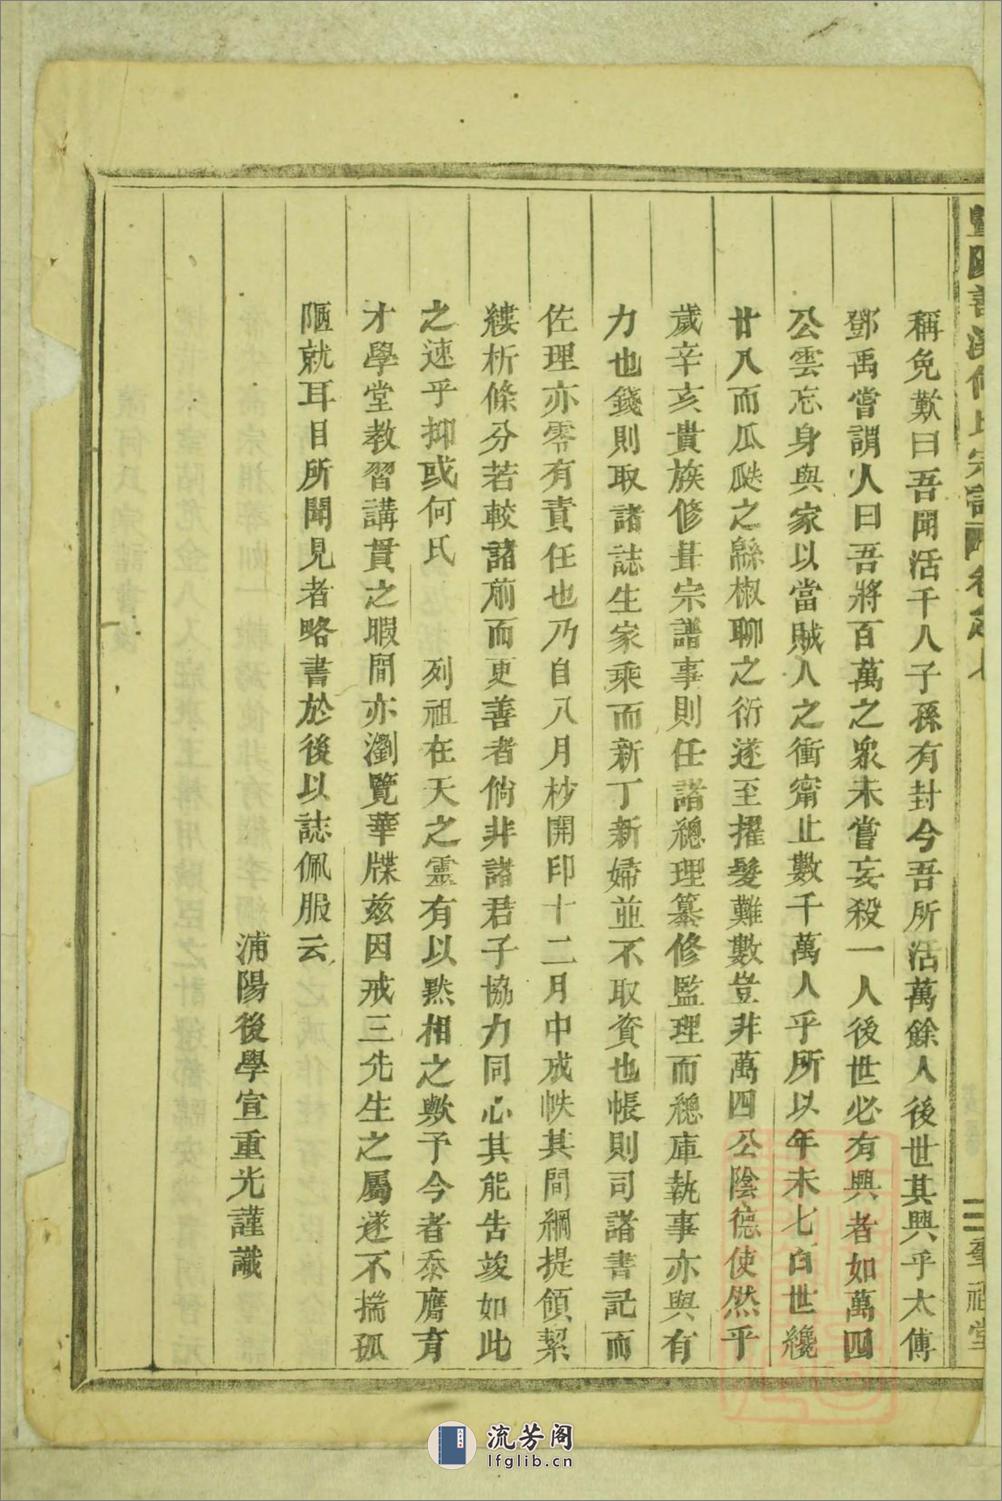 稱免歎曰吾聞活千人子孫有封今吾所活萬餘人後世其興乎太傅
鄧禹嘗謂人曰吾將百萬之眾未嘗妄殺一人後世必有興者如萬四
公雲忘身與家以當賊人之衝甯止數千萬人乎所以年未七百世纔
廿八而瓜瓞之緜椒聊之衍遂至擢髮難數豈非萬四公陰德使然乎
歲辛亥貴族修葺宗譜事則任諸總理纂修監理而總庫執事亦與有
力也錢則取諸誌生家乘而新丁新婦並不取資也帳則司諸書記而
佐理亦零有責任也乃自八月杪開印十二月中成帙其間綱提領絜
縷析條分若較諸前而更善者倘非諸君子協力同心其能告竣如此
之速乎抑或何氏 列祖在天之靈有以默相之歟予今者忝膺育
才學堂教習講貫之暇間亦瀏覽華牒茲因戒三先生之屬遂不揣孤
陋就耳目所聞見者略書於後以誌佩服云
浦陽後學宣重光謹識
暨陽善溪何氏宗譜 卷之
二 羣祉堂
流芳阁
lfglib.cn